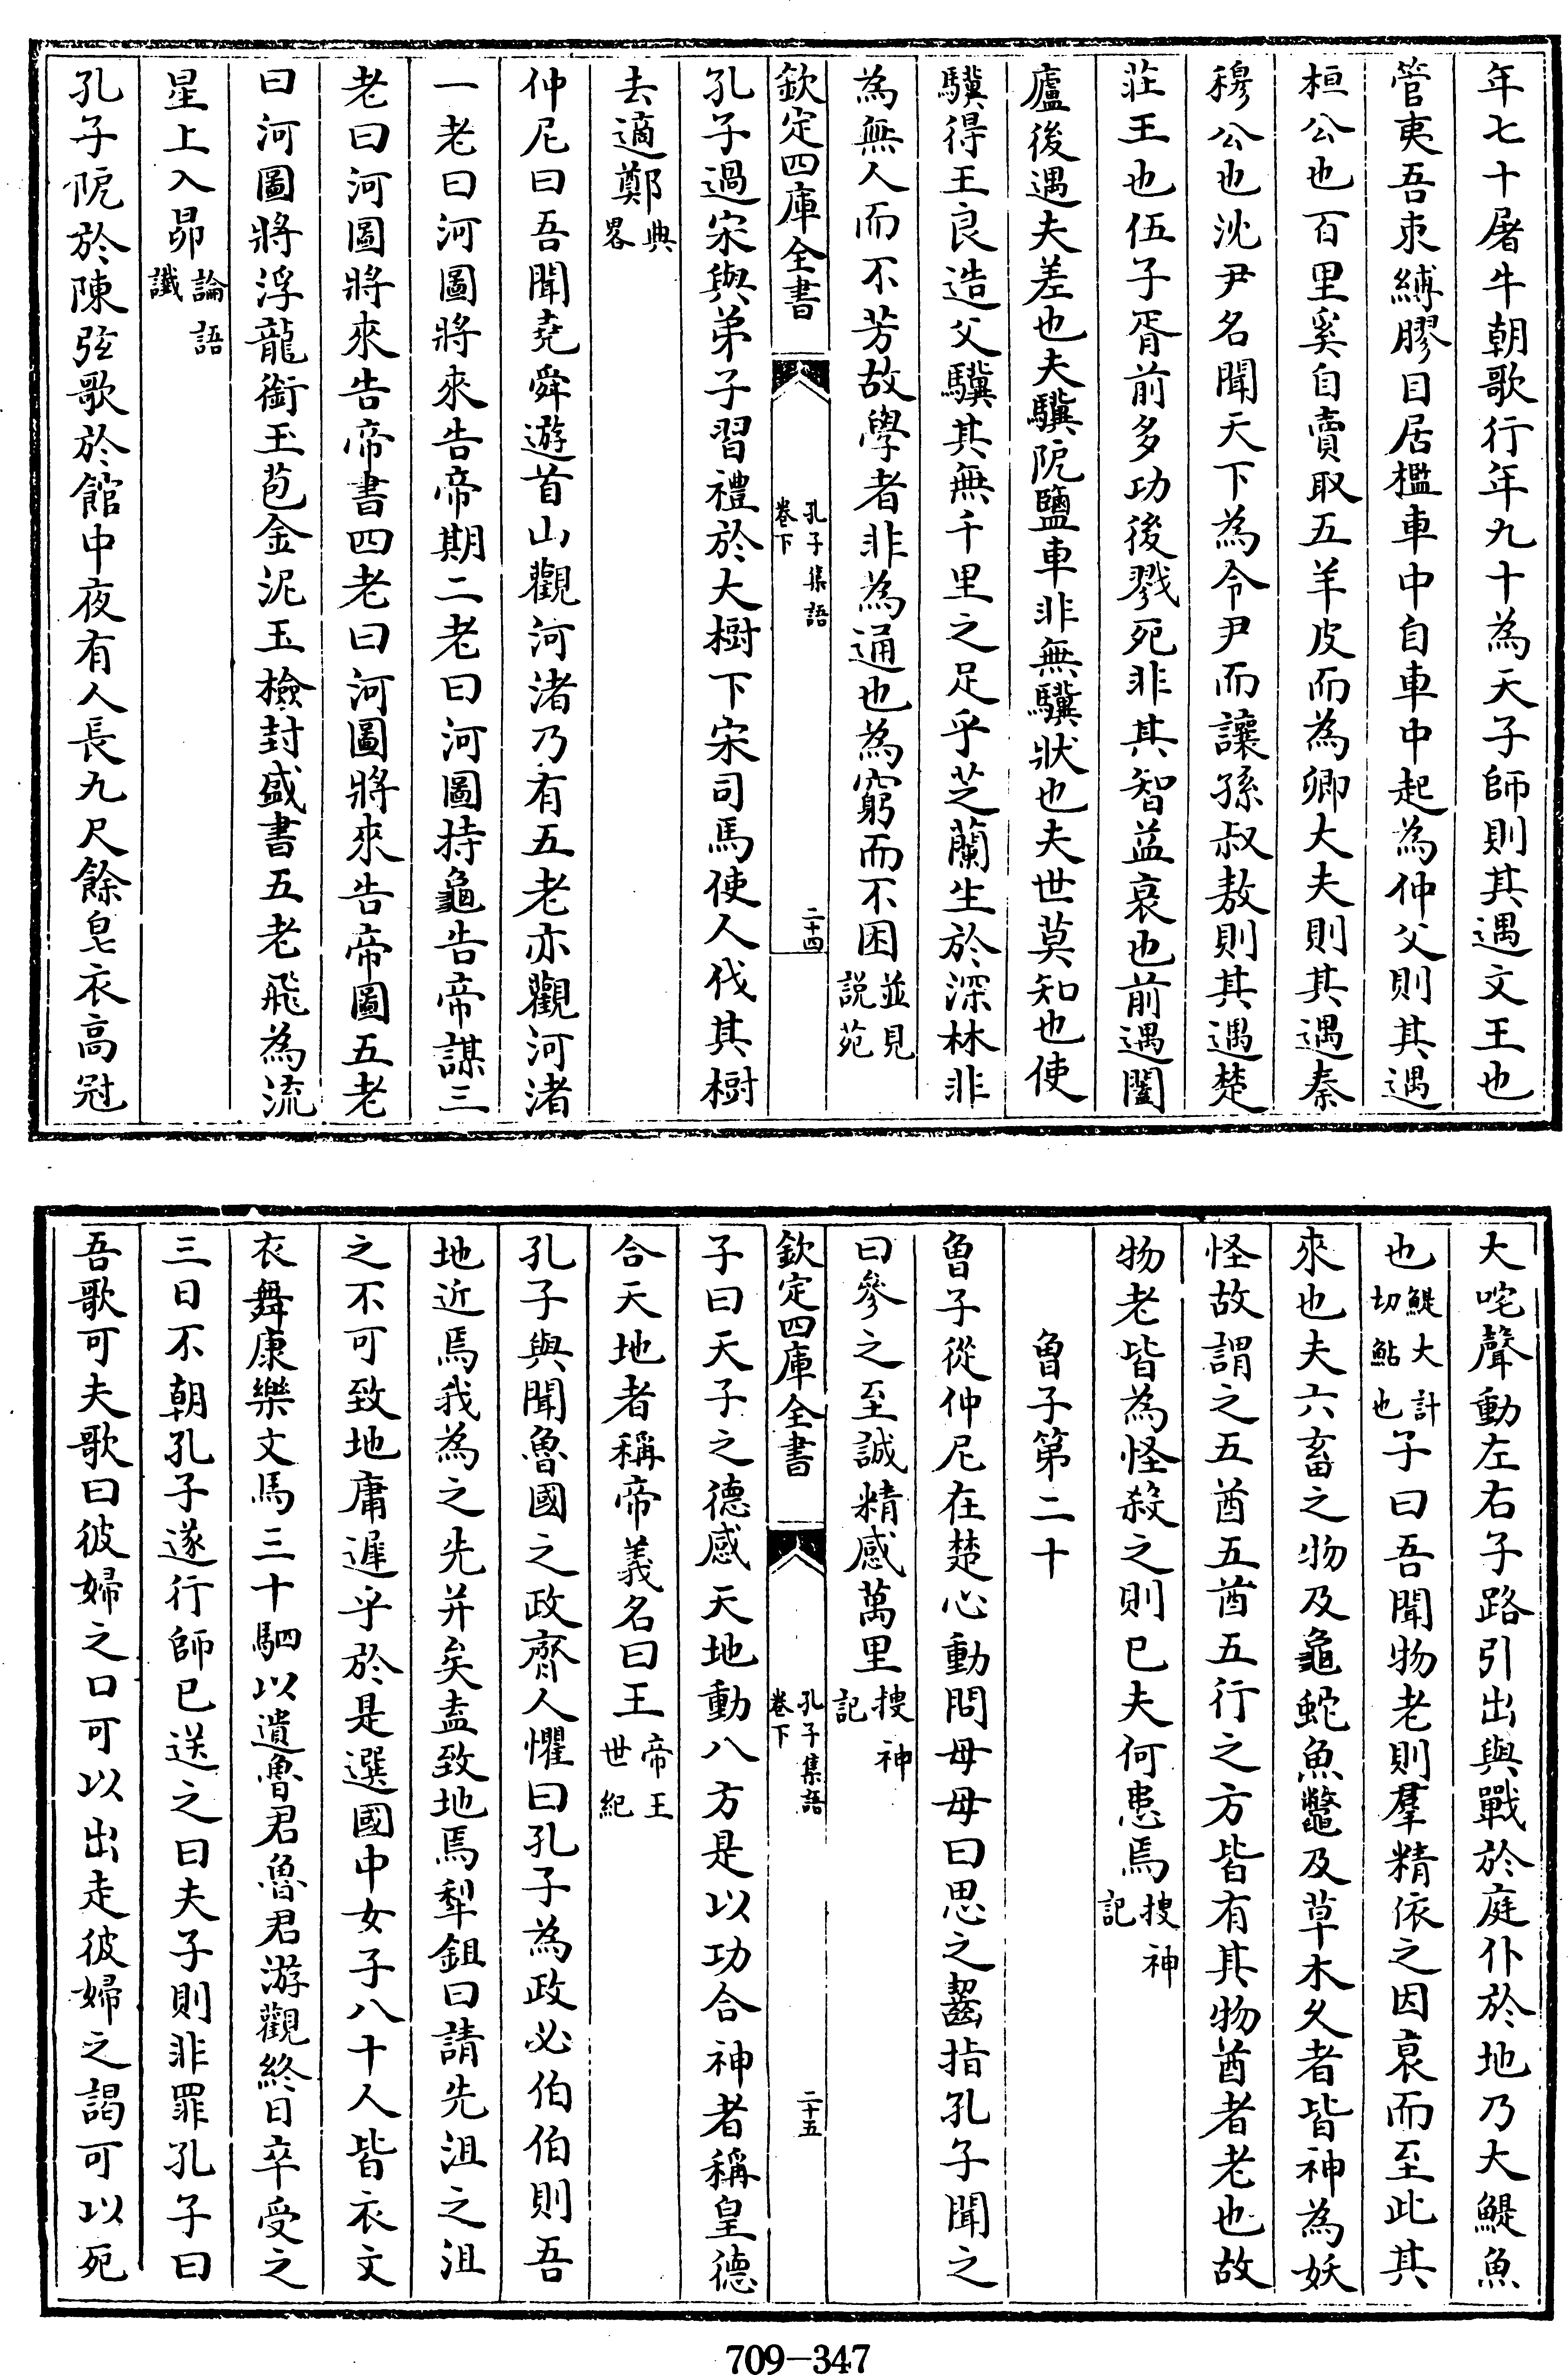 年七十屠牛朝歌行年九十為天子師則其遇文王也
管夷吾束縛膠目居檻車中自車中起為仲父則其遇
桓公也百里奚自賣取五羊皮而為卿大夫則其遇秦
穆公也沈尹名聞天下為令尹而讓孫叔敖則其遇楚
莊王也伍子胥前多功後戮死非其智益衰也前遇闔
廬後遇夫差也夫驥阨鹽車非無驥狀也夫世莫知也使
驥得王良造父驥其無千里之足乎芝蘭生於深林非
為無人而不芳故學者非為通也為窮而不困並見說苑
欽定四庫全書 孔子集語卷下 二十四
孔子過宋與弟子習禮於大樹下宋司馬使人伐其樹
去適鄭典畧
仲尼曰吾聞堯舜遊首山觀河渚乃有五老亦觀河渚
一老曰河圖將來告帝期二老曰河圖持龜告帝謀三
老曰河圖將來告帝書四老曰河圖將來告帝圖五老
曰河圖將浮龍銜玉苞金泥玉檢封盛書五老飛為流
星上入昴論語讖
孔子阨於陳弦歌於館中夜有人長九尺餘皂衣高冠
大咤聲動左右子路引出與戰於庭仆於地乃大鯷魚
也鯷大計切鮎也子曰吾聞物老則羣精依之因衰而至此其
來也夫六畜之物及龜蛇魚鼈及草木久者皆神為妖
怪故謂之五酋五酋五行之方皆有其物酋者老也故
物老皆為怪殺之則已夫何患焉搜神記
曾子第二十
曾子從仲尼在楚心動問母母曰思之齧指孔子聞之
曰參之至誠精感萬里搜神記
欽定四庫全書 孔子集語卷下 二十五
子曰天子之德感天地動八方是以功合神者稱皇德
合天地者稱帝義名曰王帝王世紀
孔子與聞魯國之政齊人懼曰孔子為政必伯伯則吾
地近焉我為之先并矣盍致地焉犂鉏曰請先沮之沮
之不可致地庸遲乎於是選國中女子八十人皆衣文
衣舞康樂文馬三十駟以遺魯君魯君游觀終日卒受之
三日不朝孔子遂行師已送之曰夫子則非罪孔子曰
吾歌可夫歌曰彼婦之口可以出走彼婦之謁可以死
709-347